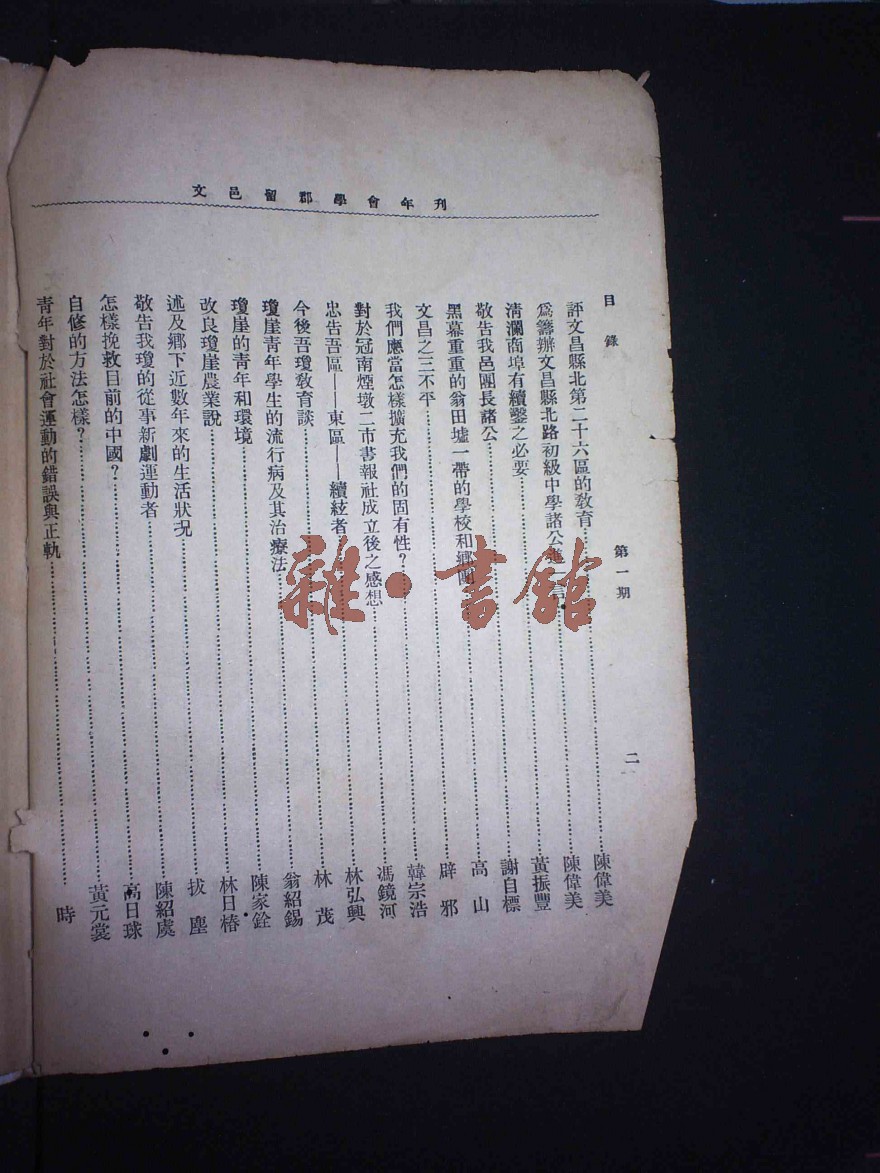 文邑留郡學會年刊
目錄 第一期 二
評文昌縣北第二十六區的敎育……陳偉美
爲籌辦文昌縣北路初級中學諸公進一言……陳偉美
清瀾商埠有續鑿之必要……黃振豐
敬告我邑團長諸公……謝自標
黑幕重重的翁田墟一帶的學校和鄉團……高山
文昌之三不平……辟邪
我們應當怎樣擴充我們的固有性？……韓宗浩
對於冠南煙墩二市書報社成立後之感想……馮鏡河
忠告吾區——東區——續絃者……林弘興
今後吾瓊敎育談……林茂
瓊崖青年學生的流行病及其治療法……翁紹錫
瓊崖的青年和環境……陳家銓
改良瓊崖農業說……林日椿
述及鄉下近數年來的生活狀况……拔塵
敬告我瓊的從事新劇運動者……陳紹虞
怎樣挽救目前的中國？……高日球
自修的方法怎樣？……黃元裳
青年對於社會運動的錯誤與正軌……時
雜·書館